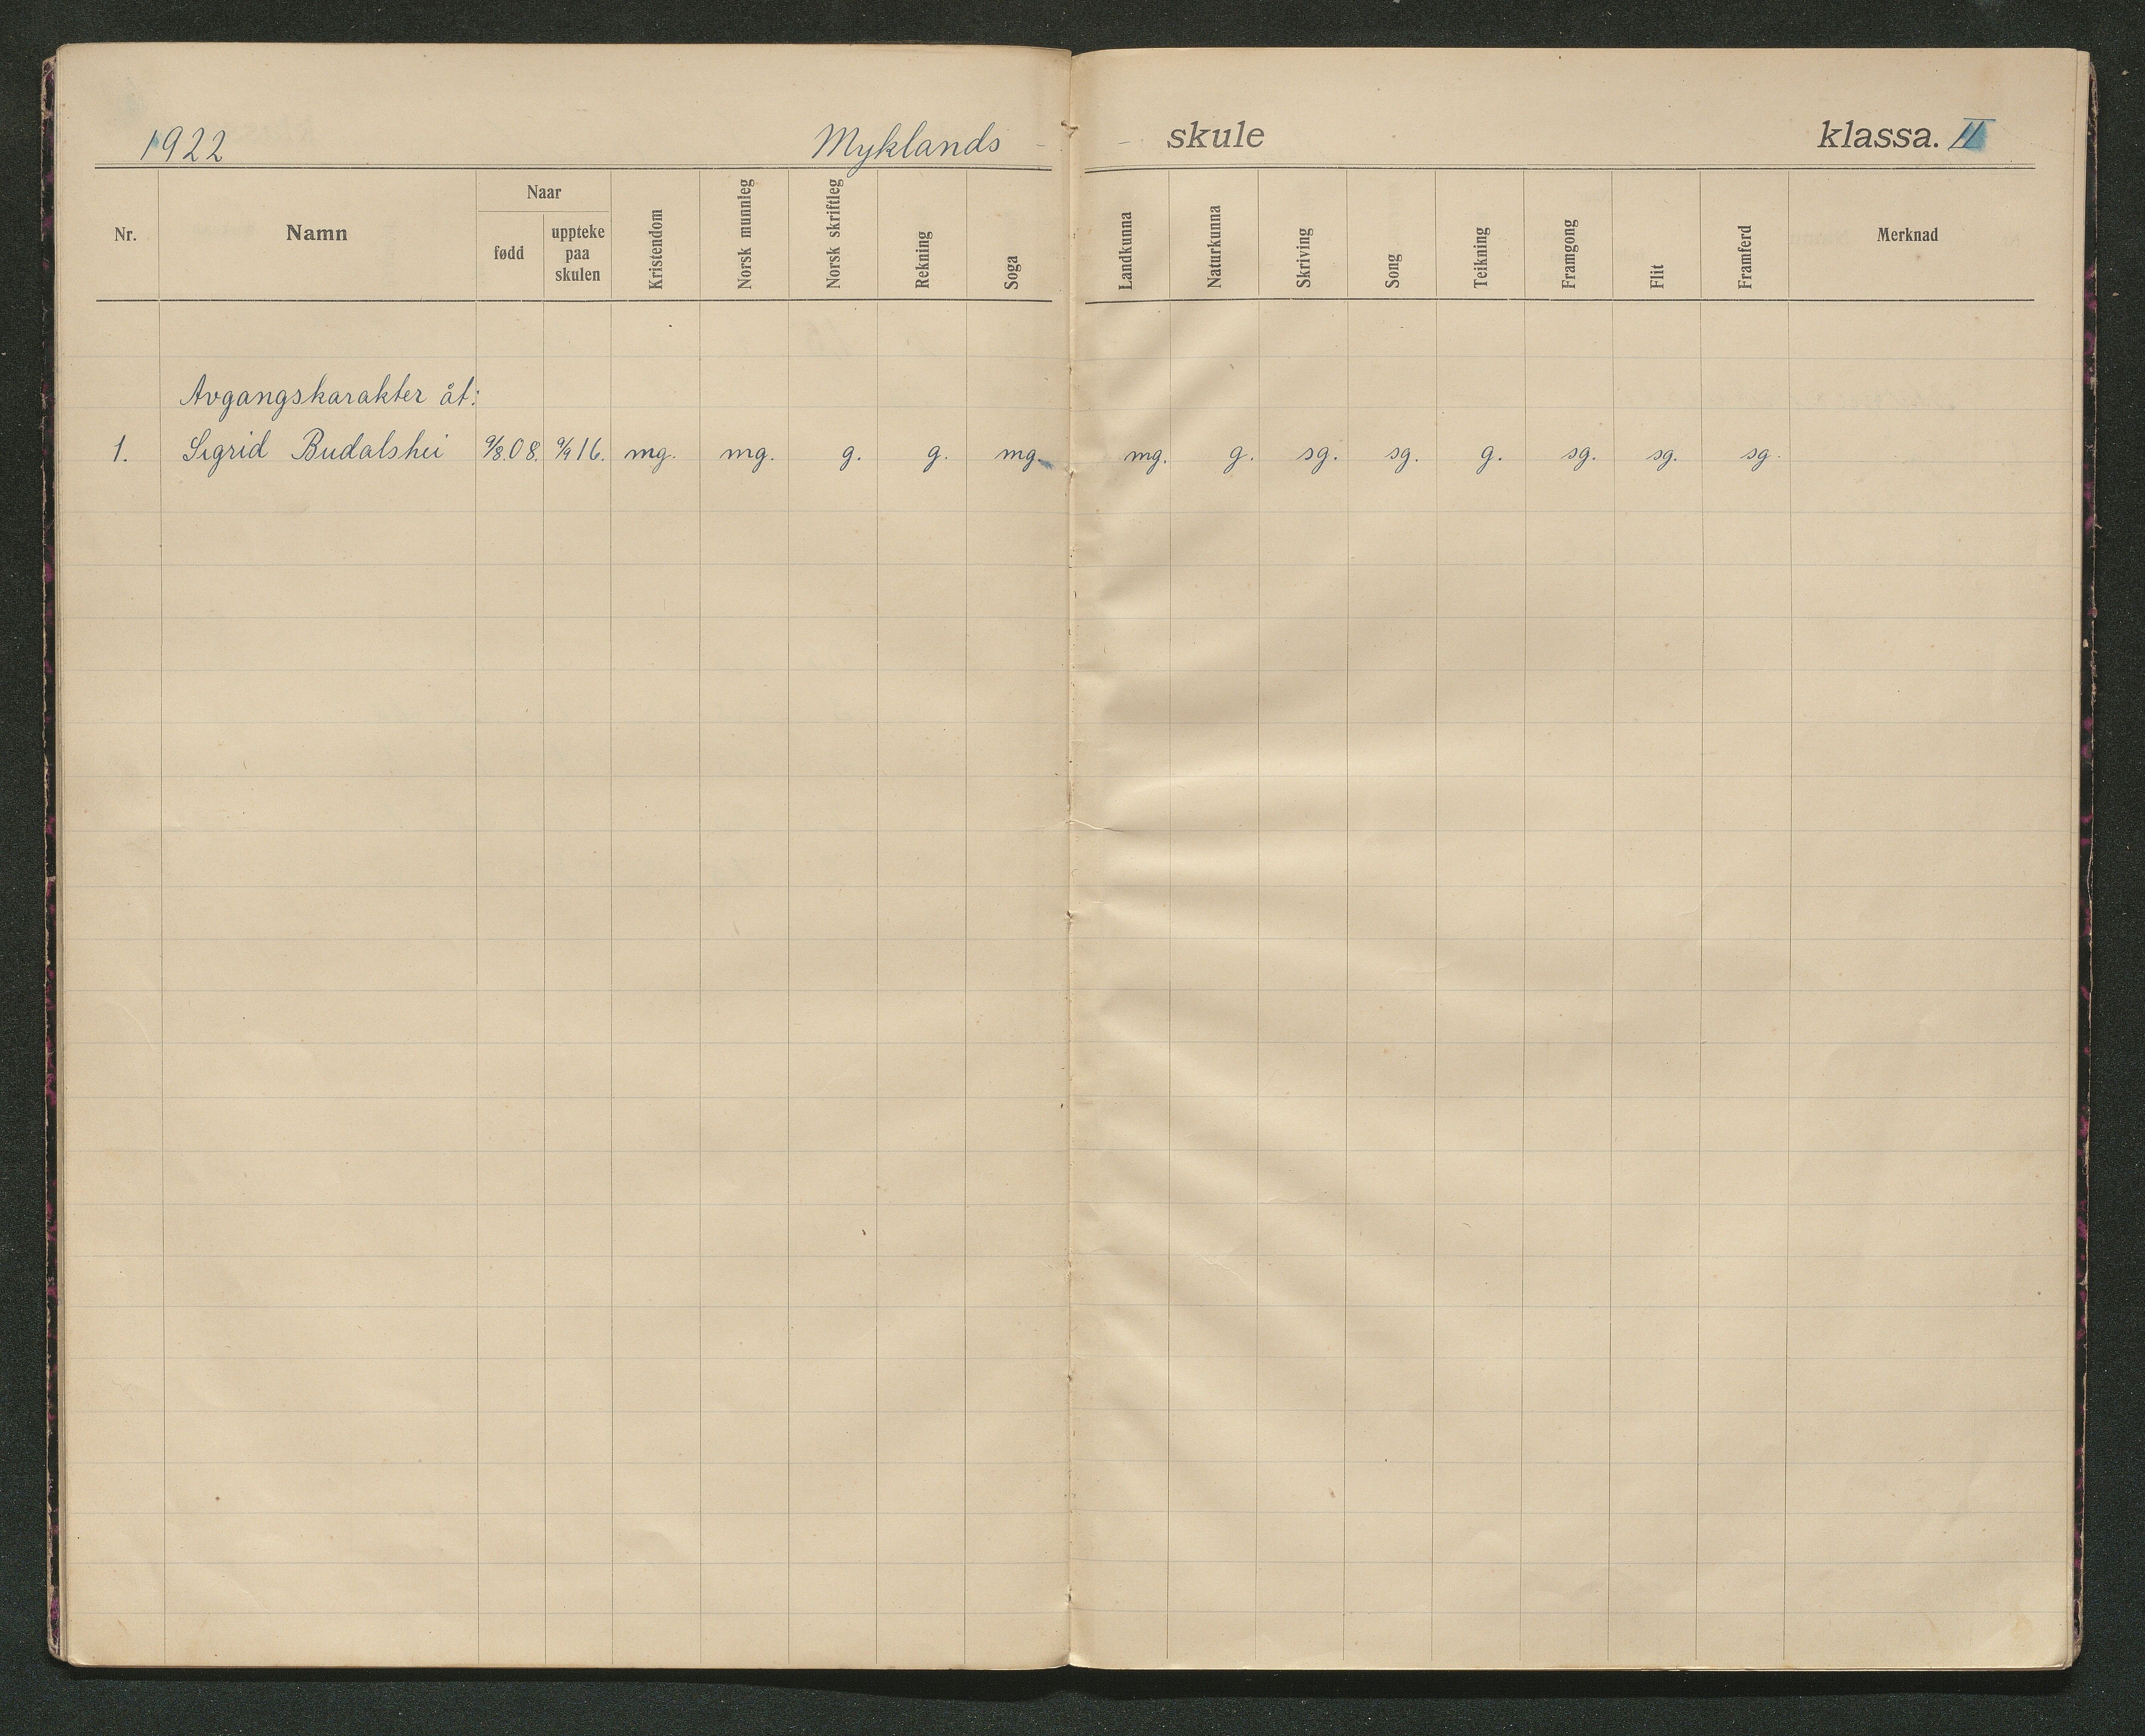 1922 Myklands skule klassa. II
Nr. Namn Naar fødd uppteke paa skulen Kristendom Norsk munnleg Norsk skriftleg Rekning Soga Landkunna Naturkunna Skriving Song Teikning Framgong Flit Framferd Merknad
Avgangskarakter åt:
1. Sigrid Budalshei 9/8.08. 9/9 16. mg. mg. g. g. mg. mg. g. sg. sg. g. sg. sg. sg.